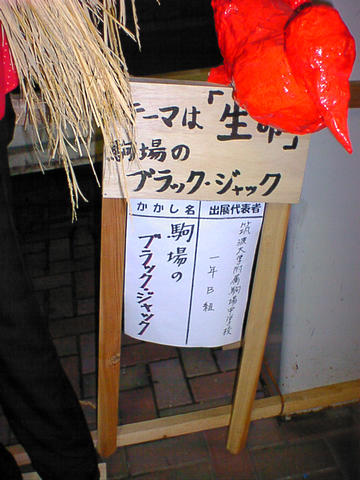 テーマは「生命」
駒場の
ブラック・ジャック
かかし名
出展代表者
駒場の
ブラック・ジャック
筑波大学附属駒場中学校
一年B組